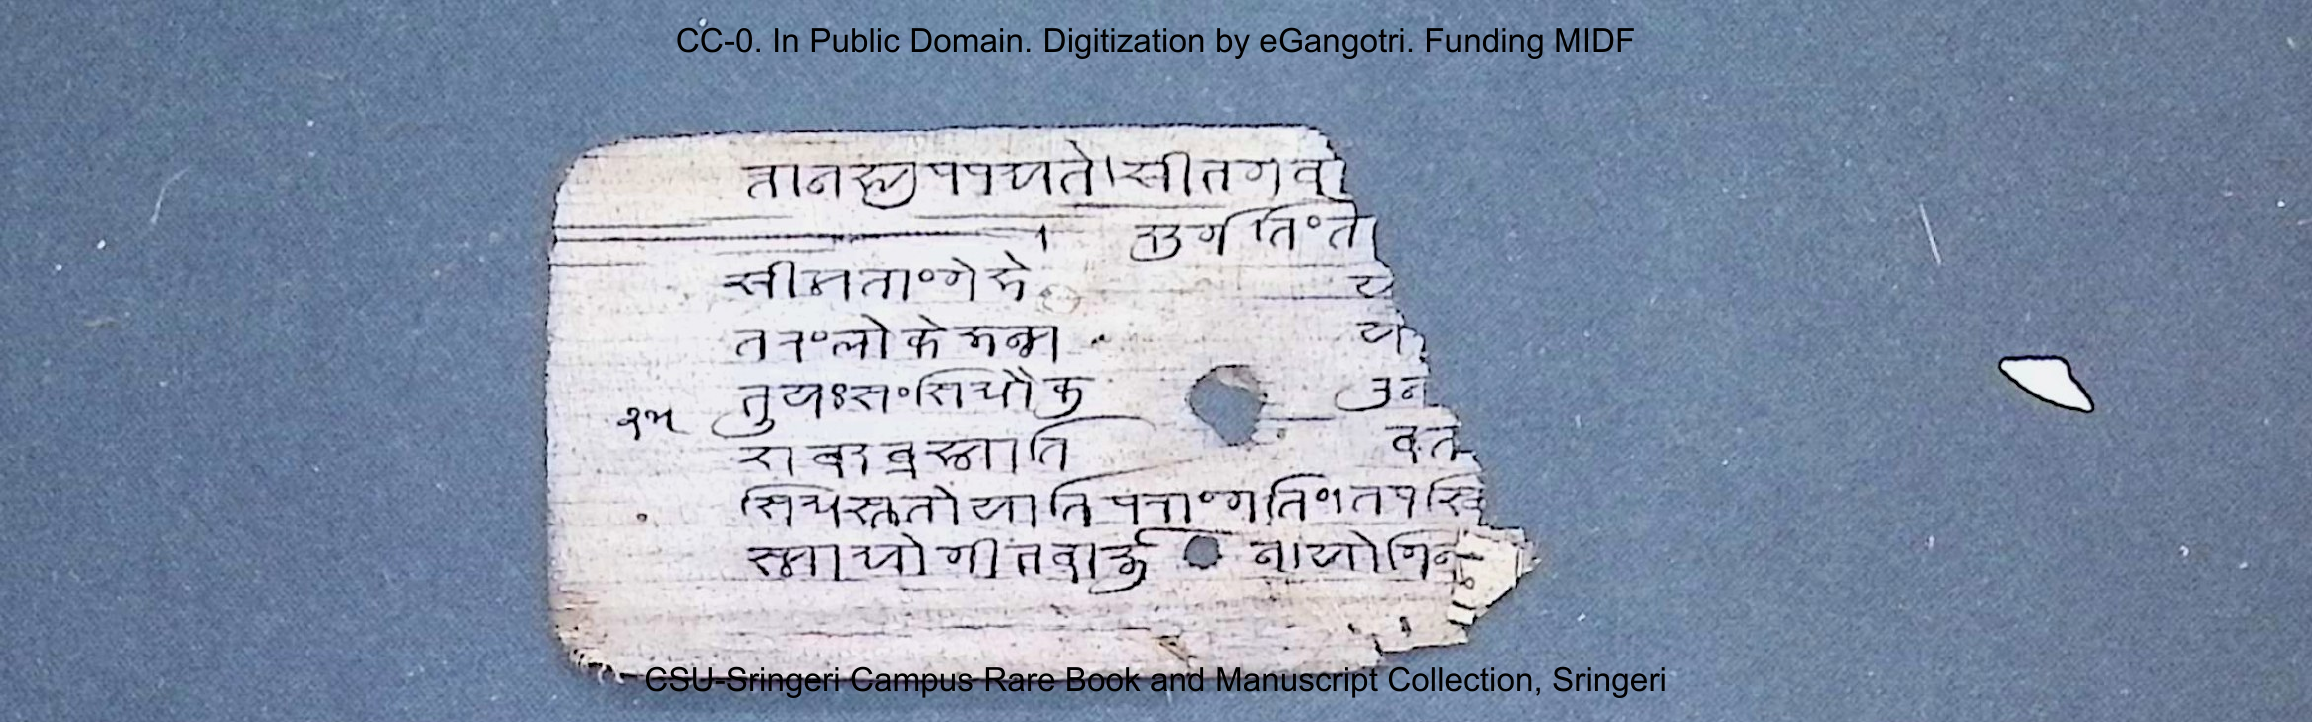 CC-0. In Public Domain. Digitization by eGangotri. Funding MIDF
त्तानह्युपपद्यते।श्रीभगवा
दुर्गतिंता
श्रीमतांगेहे
तरंलोकेजन्म
भूयःसंसिद्धौकु
शब्दब्रह्माति
सिद्धस्ततोयातिपरांगतिं।तपस्वि
स्माद्योगीभवार्जु न।योगिना
CSU-Sringeri Campus Rare Book and Manuscript Collection, Sringeri